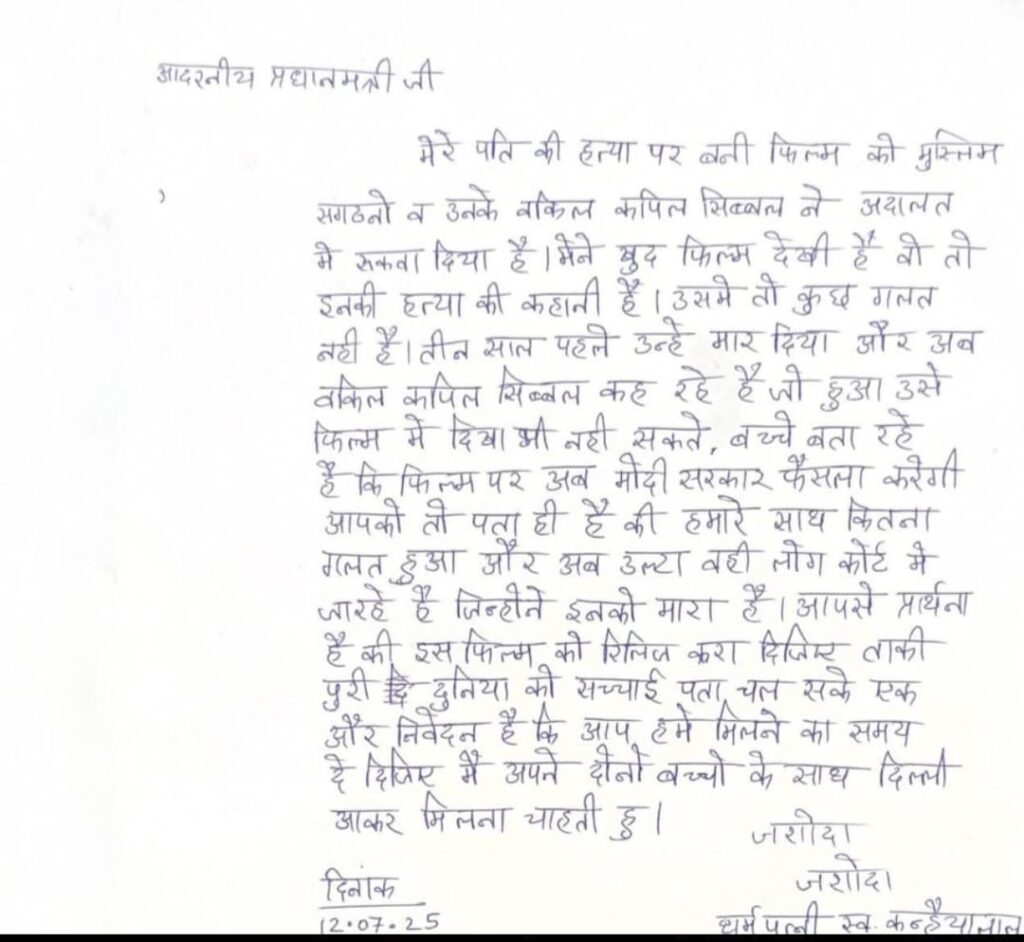 आदरनीय प्रधानमन्त्री जी
मेरे पति की हत्या पर बनी फिल्म को मुस्लिम
सगठनो व उनके वकिल कपिल सिब्बल ने अदालत
मे रुकवा दिया है। मेने खुद फिल्म देखी है वो तो
इनकी हत्या की कहानी है। उसमे तो कुछ गलत
नही है। तीन साल पहले उन्हे मार दिया और अब
वकिल कपिल सिब्बल कह रहे है जो हुआ उसे
फिल्म मे दिखा भी नही सकते, बच्चे बता रहे
है कि फिल्म पर अब मोदी सरकार फैसला करेगी
आपको तो पता ही है की हमारे साथ कितना
गलत हुआ और अब उल्टा वही लोग कोर्ट मे
जा रहे है जिन्होने इनको मारा है। आपसे प्रार्थना
है की इस फिल्म को रिलिज करा दिजिए ताकी
पुरी दुनिया को सच्चाई पता चल सके एक
और निवेदन है कि आप हमे मिलने का समय
दे दिजिए मै अपने दोनो बच्चो के साथ दिल्ली
आकर मिलना चाहती हु।
जशोदा
जशोदा
दिनांक
12.07.25
धर्मपत्नी स्व. कन्हैयालाल